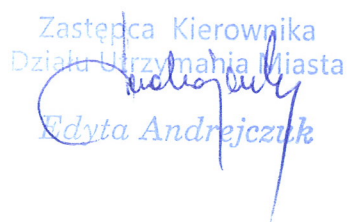 Zastępca Kierownika
Działu Utrzymania Miasta
Edyta Andrejczuk